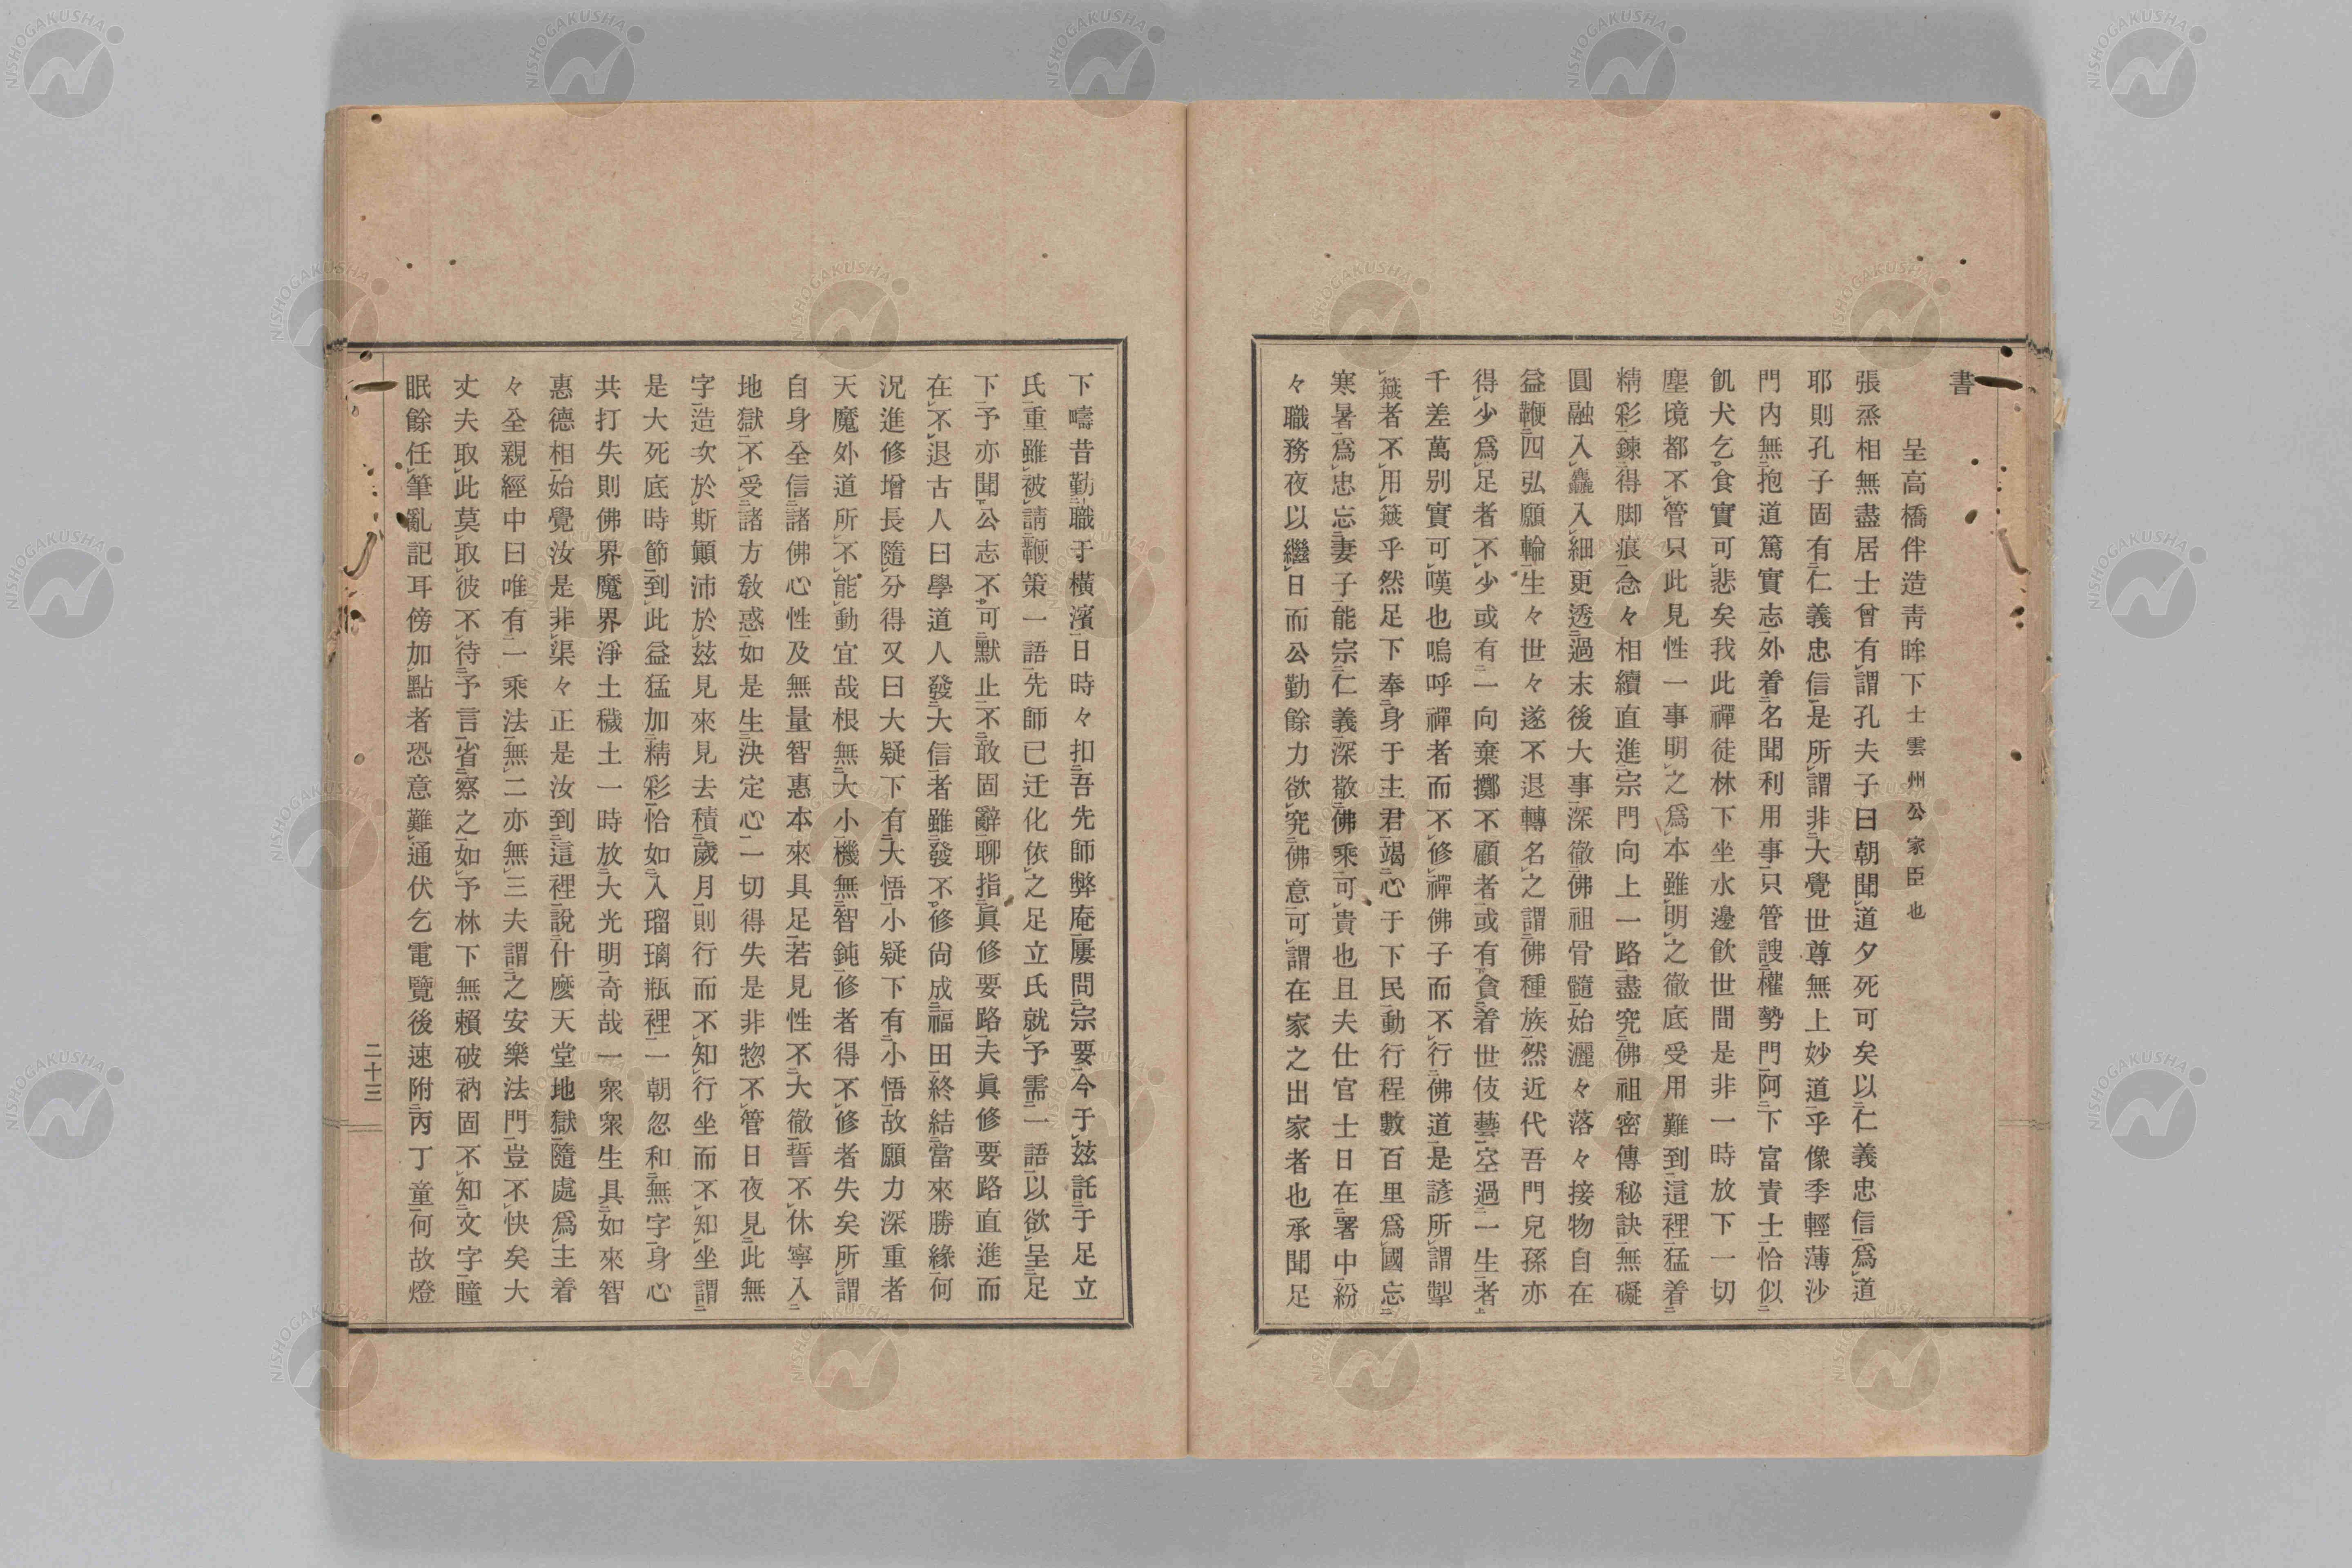 書
呈高橋伴造靑眸下士雲州公家臣也
張烝相無盡居士曾有謂孔夫子曰朝聞道夕死可矣以仁義忠信爲道
耶則孔子固有仁義忠信是所謂非大覺世尊無上妙道乎像季輕薄沙
門內無抱道篤實志外着名聞利用事只管謏權勢門阿下富貴士恰似
飢犬乞食實可悲矣我此禪徒林下坐水邊飮世間是非一時放下一切
塵境都不管只此見性一事明之爲本雖明之徹底受用難到這裡猛着
精彩鍊得脚痕念々相續直進宗門向上一路盡究佛祖密傳秘訣無礙
圓融入麤入細更透過末後大事深徹佛祖骨髓始灑々落々接物自在
益鞭四弘願輪生々世々遂不退轉名之謂佛種族然近代吾門兒孫亦
得少爲足者不少或有一向棄擲不顧者或有貪着世伎藝空過一生者
千差萬別實可嘆也嗚呼禪者而不修禪佛子而不行佛道是諺所謂掣
籏者不用籏乎然足下奉身于主君竭心于下民動行程數百里爲國忘
寒暑爲忠忘妻子能宗仁義深敬佛乘可貴也且夫仕官士日在署中紛
々職務夜以繼日而公勤餘力欲究佛意可謂在家之出家者也承聞足
下疇昔勤職于橫濱日時々扣吾先師弊庵屢問宗要今于玆託于足立
氏重雖被請鞭策一語先師已迁化依之足立氏就予需一語以欲呈足
下予亦聞公志不可默止不敢固辭聊指眞修要路夫眞修要路直進而
在不退古人曰學道人發大信者雖發不修尙成福田終結當來勝緣何
況進修增長隨分得又曰大疑下有大悟小疑下有小悟故願力深重者
天魔外道所不能動宜哉根無大小機無智鈍修者得不修者失矣所謂
自身全信諸佛心性及無量智惠本來具足若見性不大徹誓不休寧入
地獄不受諸方敎惑如是生決定心一切得失是非惣不管日夜見此無
字造次於斯顚沛於玆見來見去積歲月則行而不知行坐而不知坐謂
是大死底時節到此益猛加精彩恰如入瑠璃瓶裡一朝忽和無字身心
共打失則佛界魔界淨土穢土一時放大光明奇哉一衆衆生具如來智
惠德相始覺汝是非渠々正是汝到這裡說什麼天堂地獄隨處爲主着
々全親經中曰唯有一乘法無二亦無三夫謂之安樂法門豈不快矣大
丈夫取此莫取彼不待予言省察之如予林下無賴破衲固不知文字瞳
眠餘任筆亂記耳傍加點者恐意難通伏乞電覽後速附丙丁童何故燈
二十三